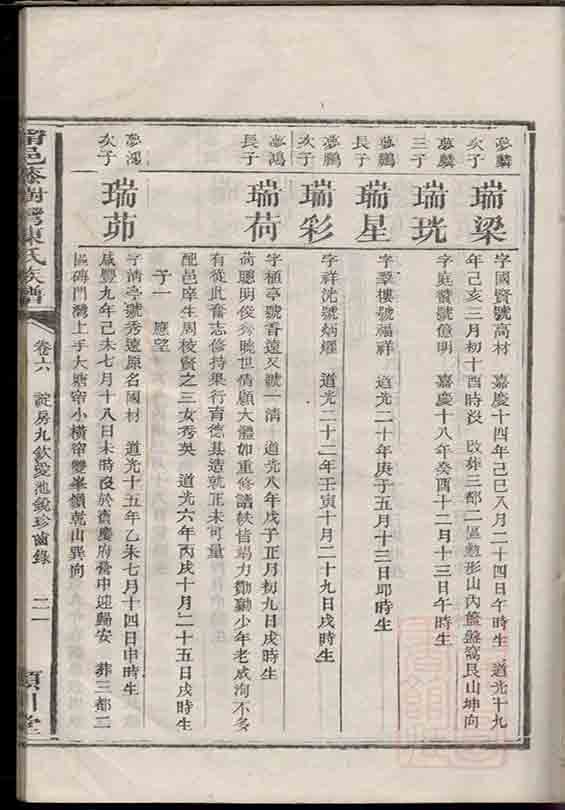 夢麟
次子
瑞梁
字國賢號高材 嘉慶十四年己巳八月二十四日午時生 道光十九
年己亥三月初十酉時沒 改葬三都二區 形山內籃盤窩艮山坤向
夢麟
三子
瑞珖
字庭 號億明 嘉慶十八年癸酉十二月十三日午時生
夢鵬
長子
瑞星
字 樓號福祥 道光二十年庚子五月十三日卯時生
夢鵬
次子
瑞彩
字祥 號炳耀 道光二十二年壬寅十月二十九日戌時生
夢鴻
長子
瑞荷
字植亭號香遠又號一清 道光八年戊子正月初九日戌時生
荷聰明俊秀曉世情顧大體如重修譜 竭力 勷少年老成洵不多
有從此奮志修持果行育德基造就正未可量
配邑庠生周 賢之三女秀英 道光六年丙戌十月二十五日戌時生
子一 應望
夢鴻
次子
瑞茆
字清亭號秀遠原名國材 道光十五年乙未七月十四日申時生
咸豐九年己未七月十八日未時沒於寶慶府 中迎歸安 葬三都二
區磚門灣上手大塘 小橫 雙峯 乾山巽向
邑 樹灣陳氏族譜
卷六
房九欽愛池鏡珍齒錄
二一
潁川堂